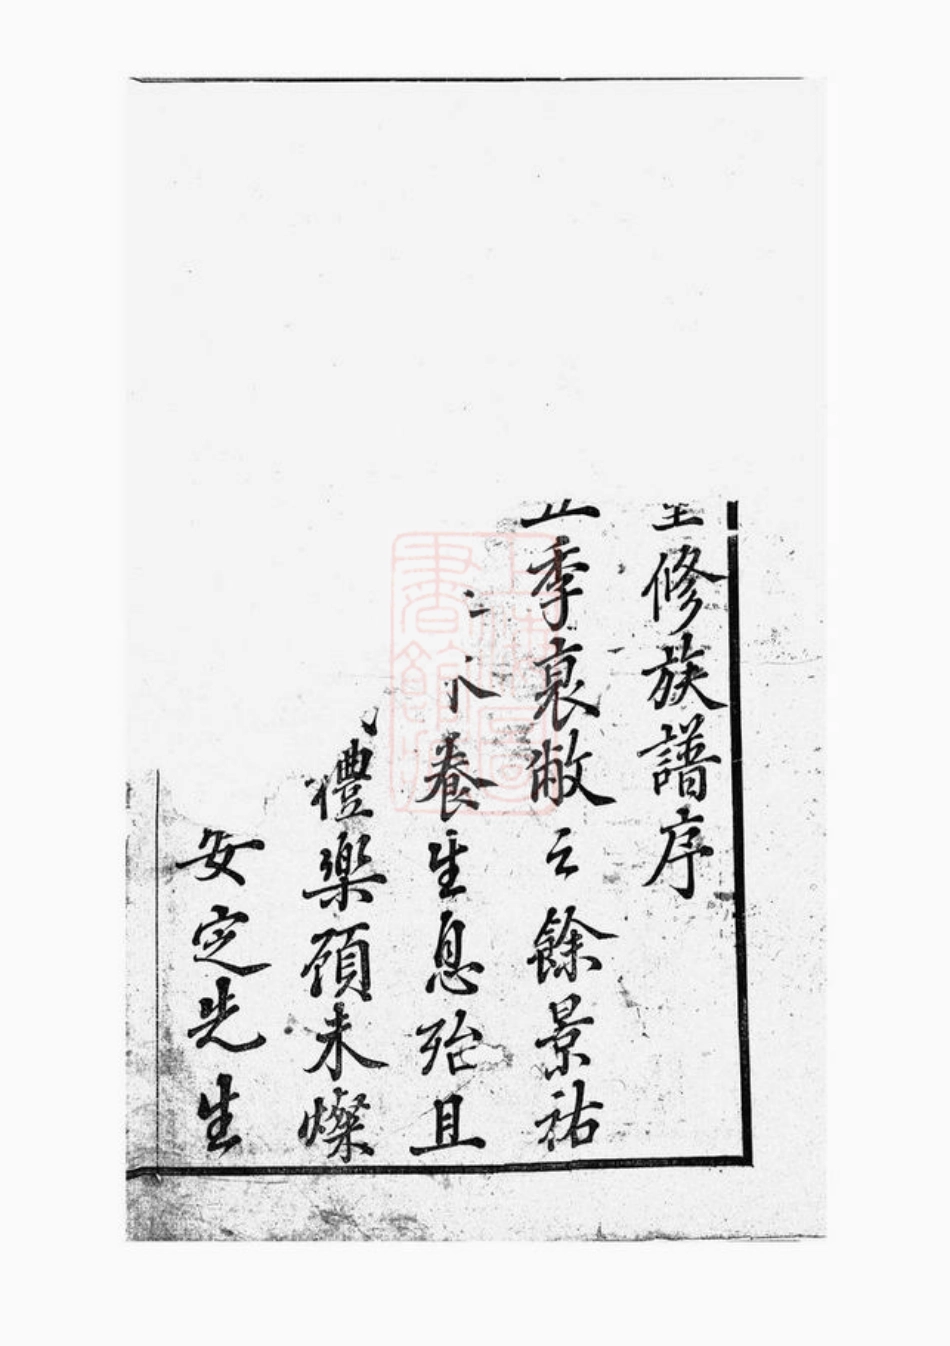 修族譜序
季衰敝之餘景祐
養生息殆且
禮樂顧未燦
安定先生